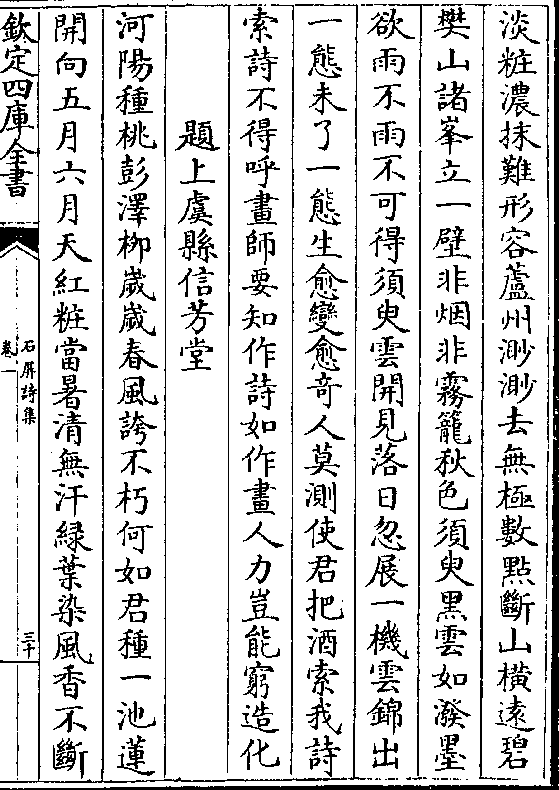 淡粧濃抹難形容蘆州渺渺去無極數點斷山橫遠碧
樊山諸峯立一壁非烟非霧籠秋色須臾黑雲如潑墨
欲雨不雨不可得須臾雲開見落日忽展一機雲錦出
一態未了一態生愈變愈竒人莫測使君把酒索我詩
索詩不得呼畫師要知作詩如作畫人力豈能窮造化
題上虞縣信芳堂
河陽種桃彭澤柳歲歲春風誇不朽何如君種一池蓮
開向五月六月天紅粧當暑清無汗緑葉染風香不斷
欽定四庫全書
石屏詩集
卷一
三十